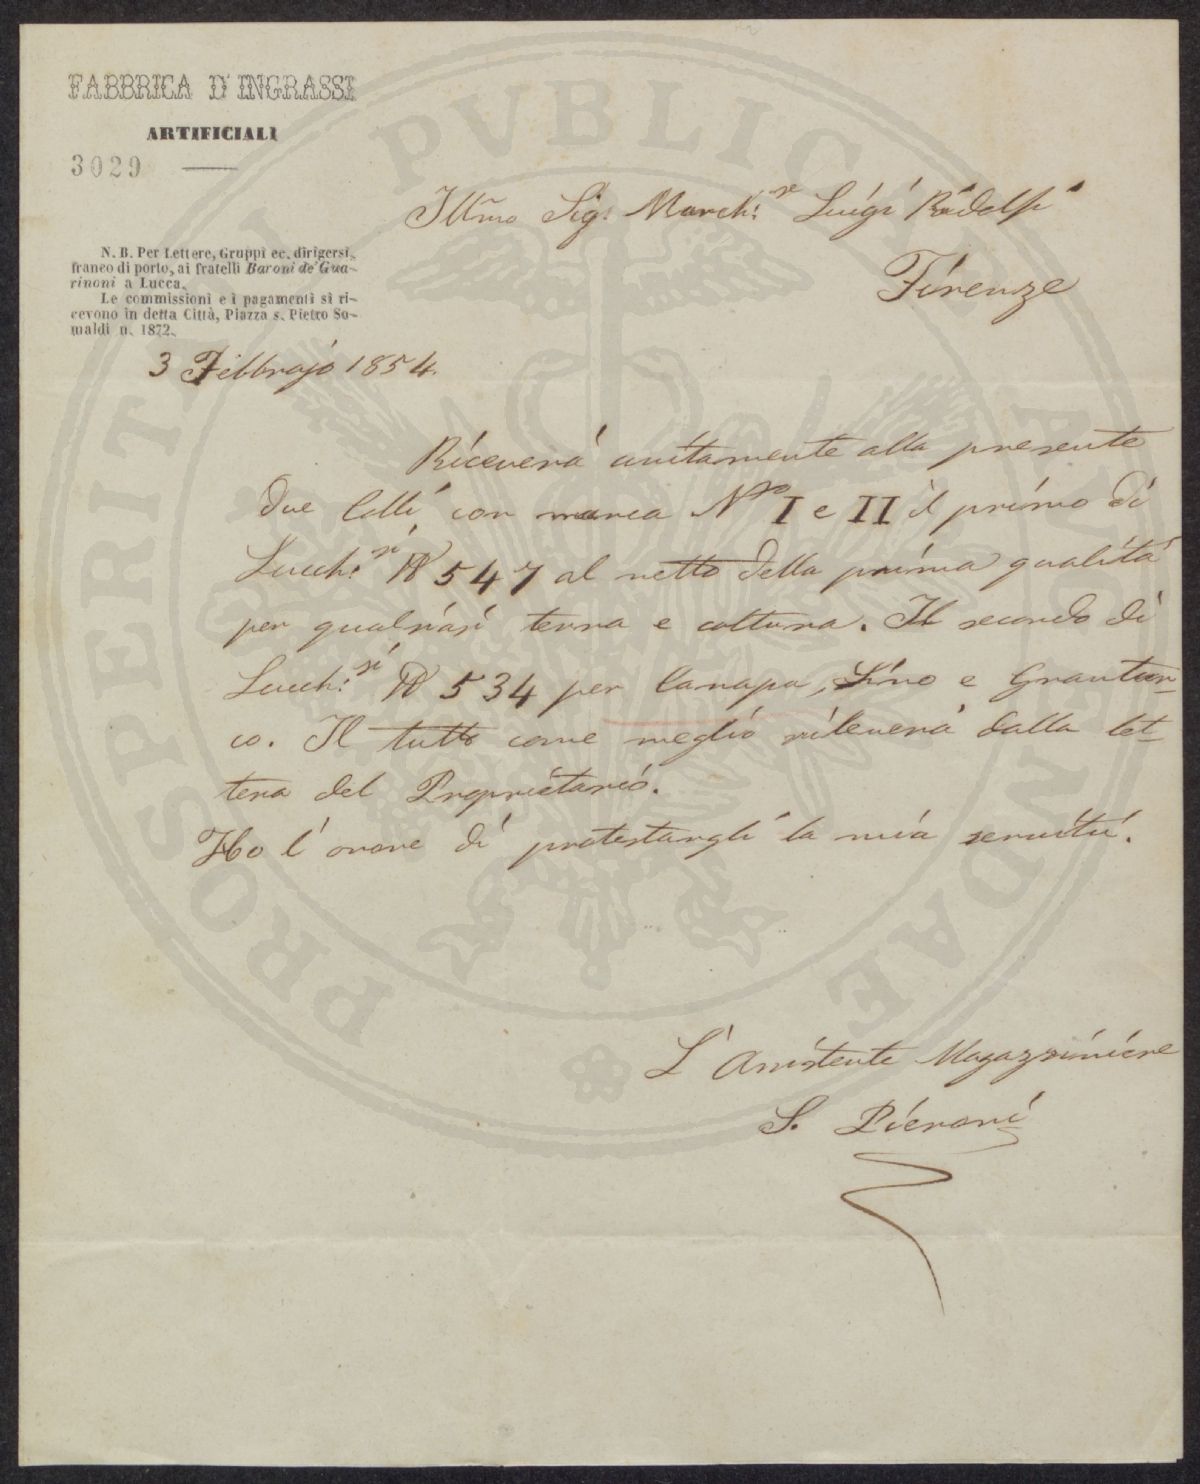 FABBRICA D'INGRASSI
ARTIFICIALI
3029
Ill̃mo Sigr March:se Luigi Ridolfi
Firenze
N. B. Per Lettere, Gruppi ec. dirigersi,
franco di porto, ai fratelli Baroni de' Gua-
rinoni a Lucca.
Le commissioni e i pagamenti si ri-
cevono in detta Città, Piazza s. Pietro So-
maldi n. 1872.
3 Febbrajo 1854.
Riceverà unitamente alla presente
due Colli con marca Nro I e II il primo di
Lucch:si ℔ 547 al netto della prima qualità
per qualsiasi terra e coltura. Il secondo di
Lucch:si ℔ 534 per Canapa, Lino e Grantur-
co. Il tutto come meglio rileverà dalla let-
tera del Proprietario.
Ho l'onore di protestargli la mia servitù.
L'Assistente Magazziniere
S. Pieroni
PROSPERITATI PVBLICAE AVGENDAE